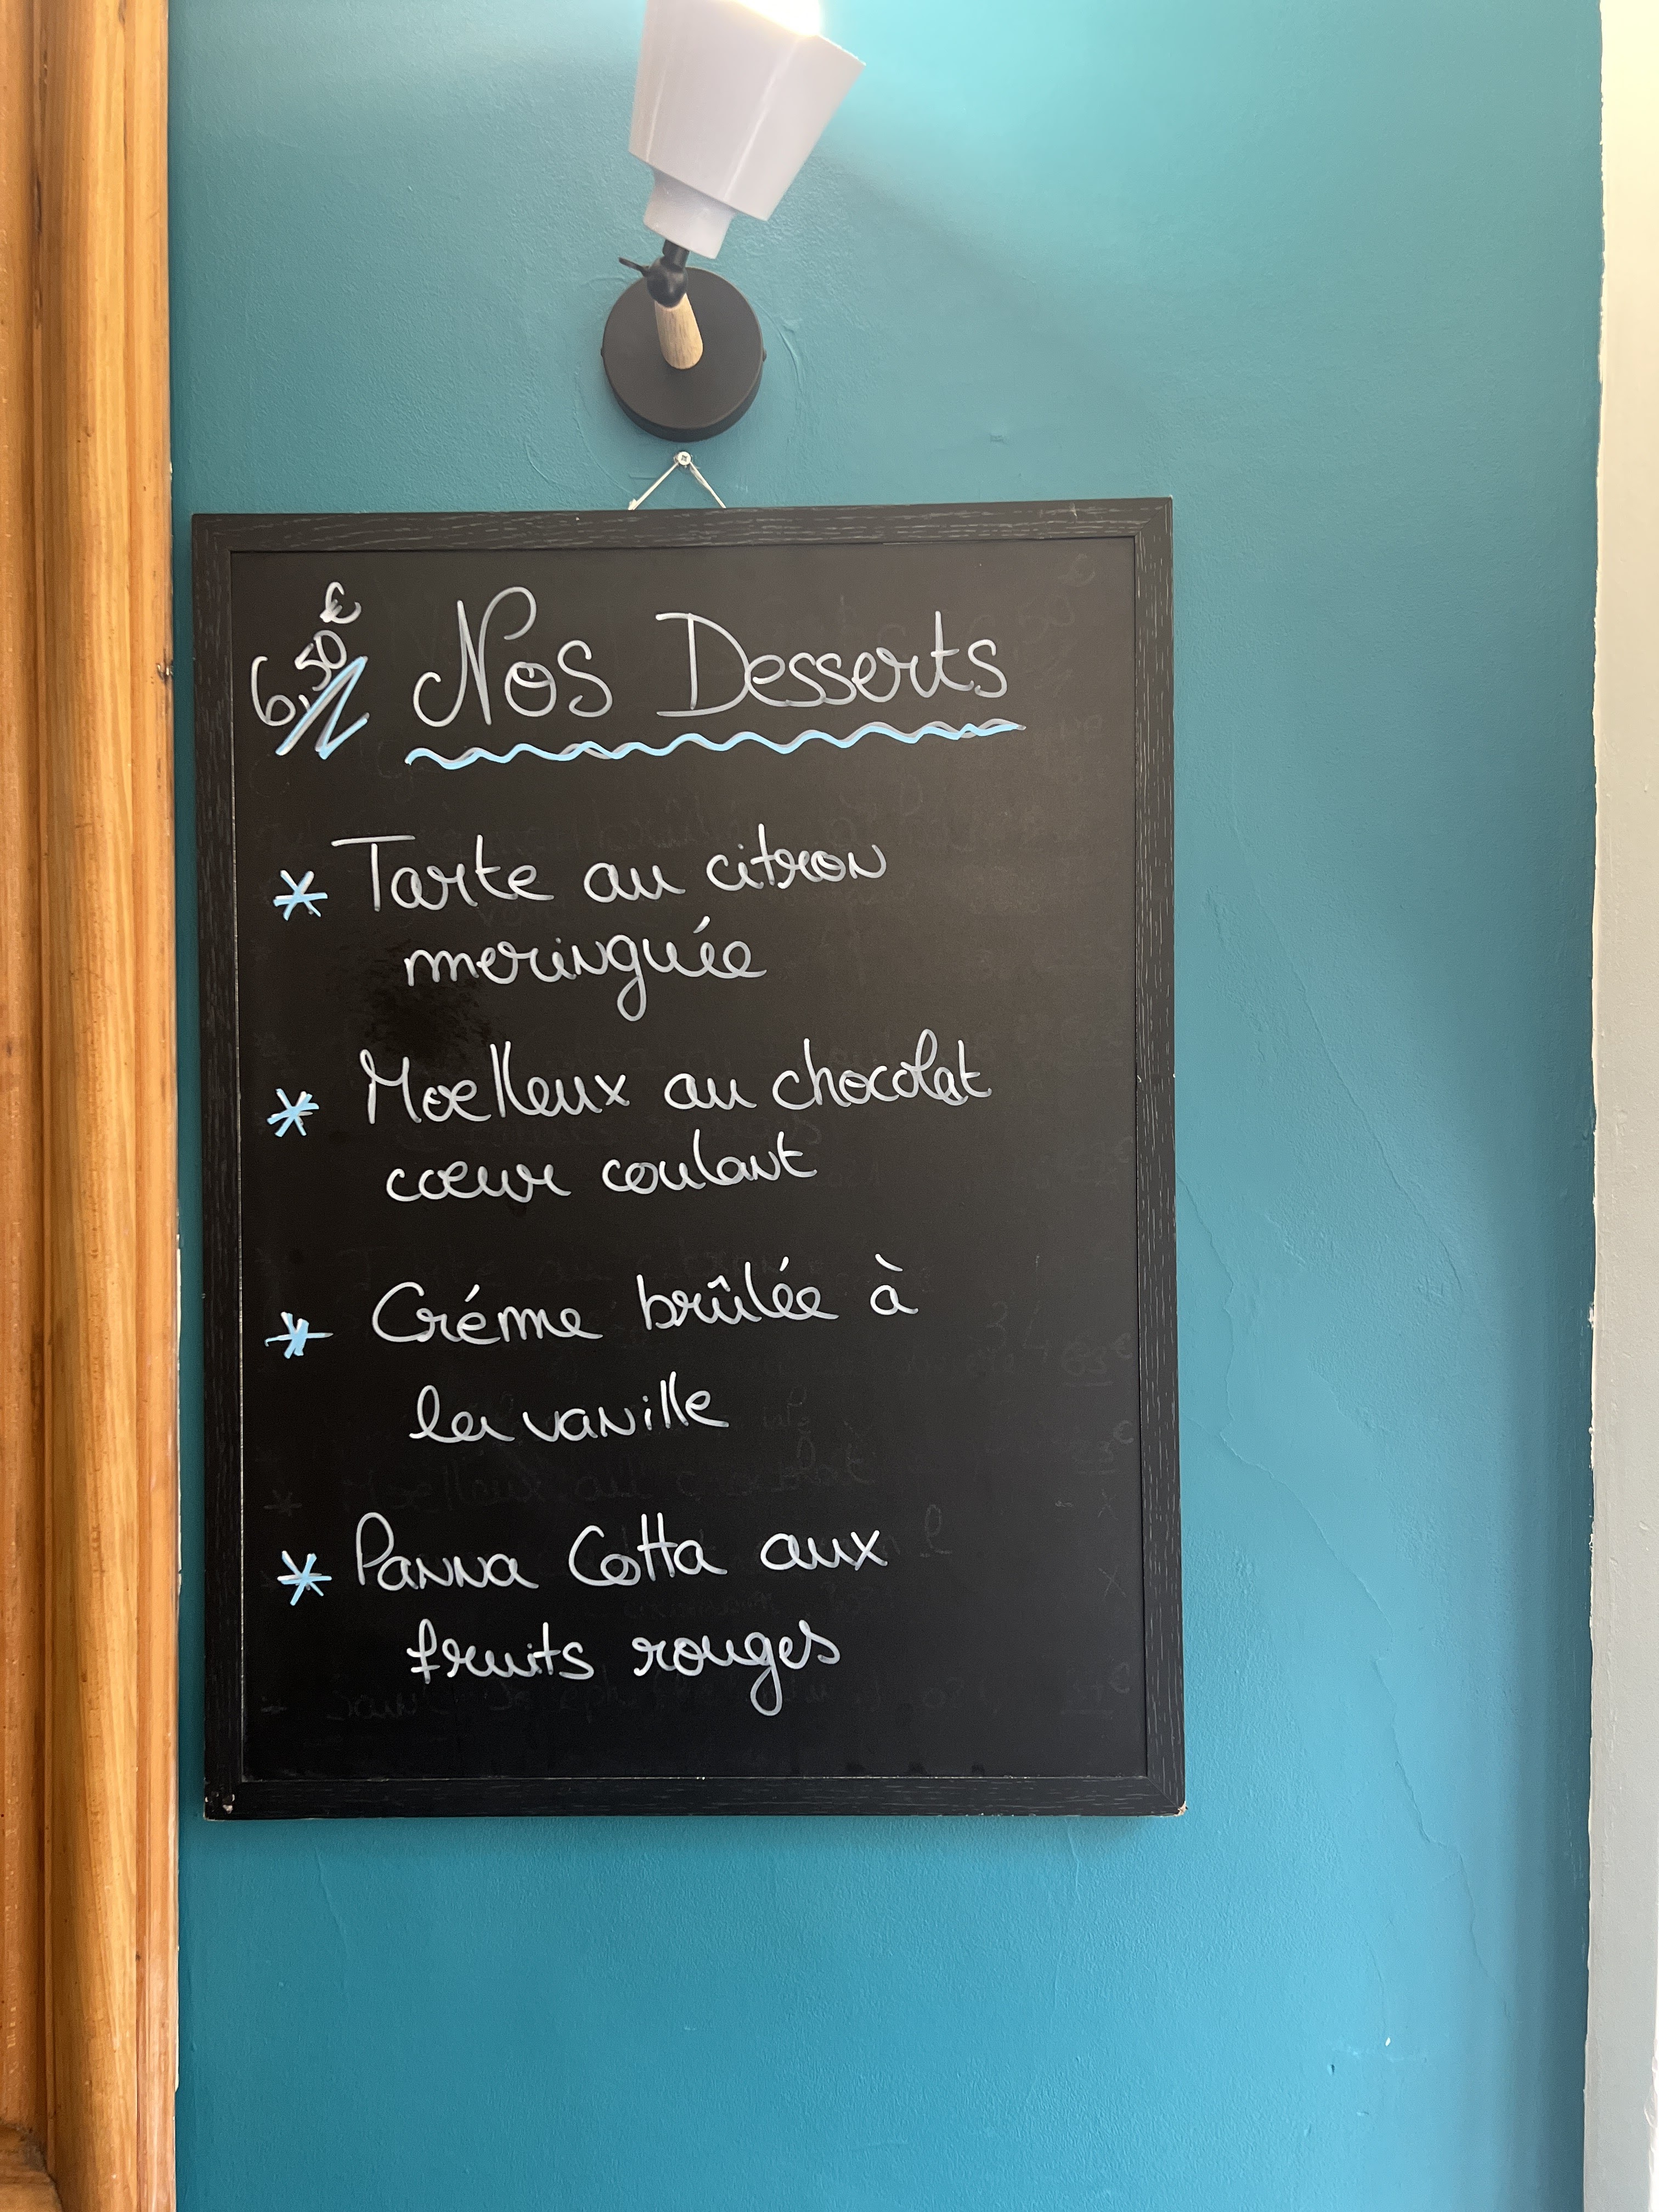 6,50€ Nos Desserts
* Tarte au citron
meringuée
* Moelleux au chocolat
cœur coulant
* Créme brûlée à
la vanille
* Panna Cotta aux
fruits rouges